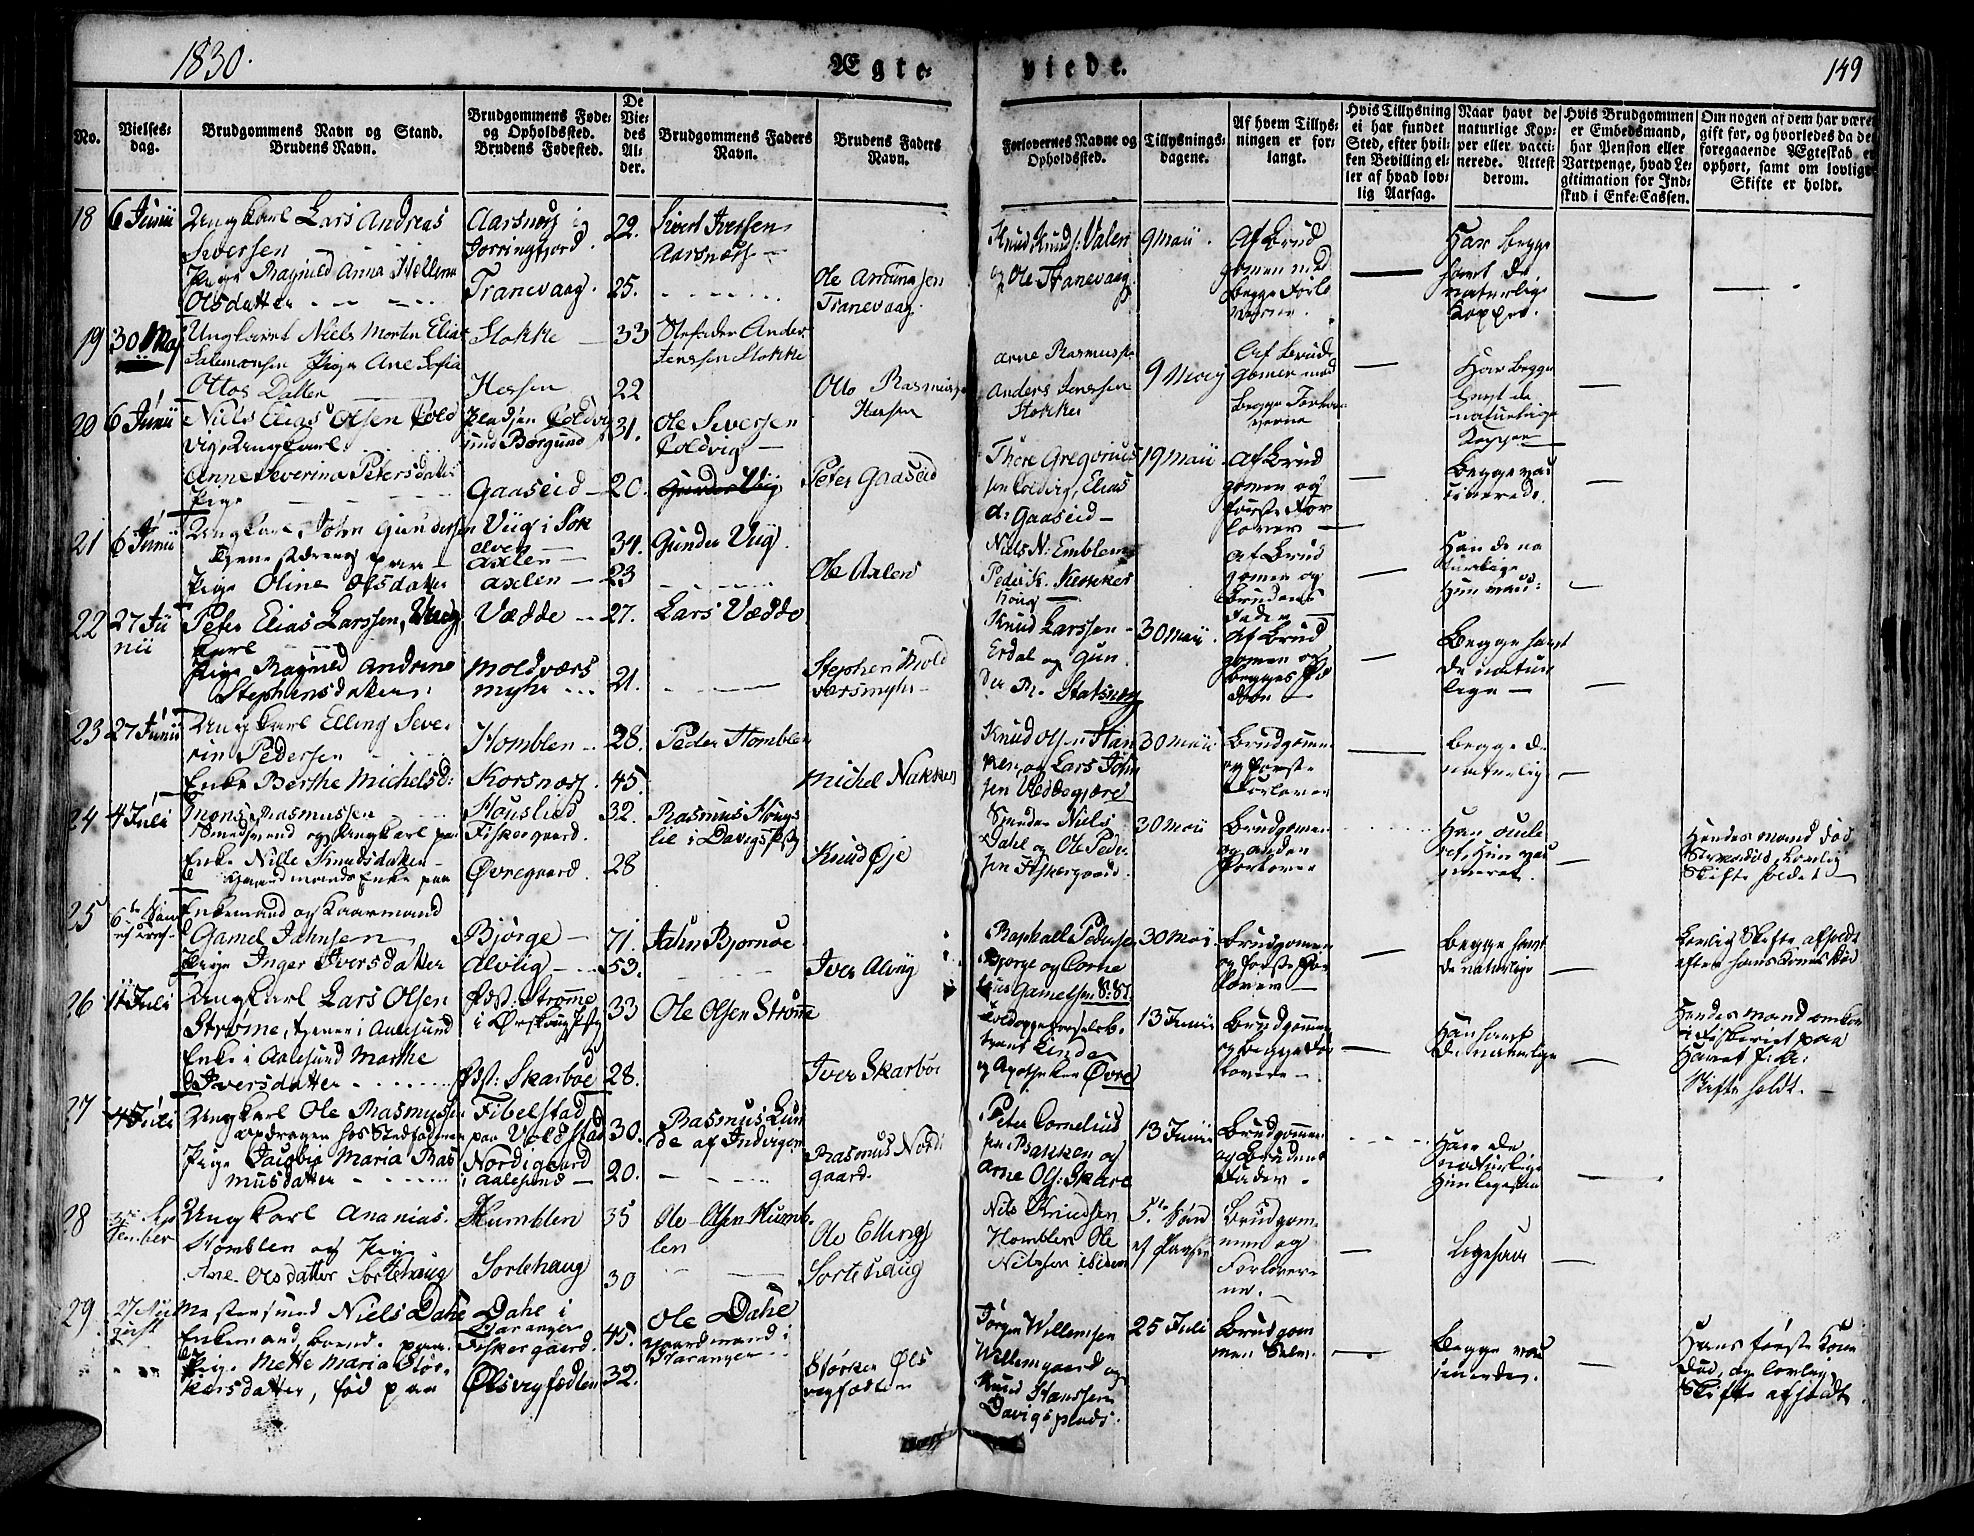 1830.
Ægte-
viede.
149
No.
Vielses-
dag.
Brudgommens Navn og Stand.
Brudens Navn.
Brudgommens Føde-
og Opholdssted.
Brudens Fødested.
De
Vie-
des
Al-
der.
Brudgommens Faders
Navn.
Brudens Faders
Navn.
Forlovernes Navne og
Opholdssted.
Tillysnings-
dagene.
Af hvem Tillys-
ningen er for-
langt.
Hvis Tillysning
ei har fundet
Sted, efter hvil-
ken Bevilling el-
ler af hvad lov-
lig Aarsag.
Naar havt de
naturlige Kop-
per eller vacci-
nerede. Attest
derom.
Hvis Brudgommen
er Embedsmand,
har Pension eller
Vartpenge, hvad Le-
gitimation for Ind-
skud i Enke-Cassen.
Om nogen af dem har været
gift før, og hvorledes da det
foregaaende Ægteskab er
ophørt, samt om lovligt
Skifte er holdt.
18
6 Junii
Ungkarl Lars Andreas
Siversen
Aarsnæs i
Jørringfjord.
22.
Sivert Iversen
Aarsnæs
Pige Ragnild Anna Hellena
Olsdatter
Tranevaag.
25.
Ole Amundsen
Tranevaag.
Knud Knuds: Valen
og Ole Tranevaag.
9 Maii.
Af Brud
gomen med
begge Forlo
verne.
Har begge
havt de
naturlige
Kopper.
19
30 Ma
Ungkarl Niels Morten Elias
Salomonsen Pige Ane Sofia
Ottos Datter
Stokke
Hessen
33
22
Stefader Anders
Jenssen Stokke
Otto Rasmusse
Hessen
Arne Rasmuss
Anders Jenssen
Stokke
9 May
Af Brud
gomen med
begge Forlo
verne
Har begge
havt de
naturlige
Kopper
20
6 Junii
Niels Elias Olsen Cold
vig, Ungkarl
Pladsen Coldvi
Borgund
31.
Ole Siversen
Coldvig
Anne Severine Petersdatter
Pige
Gaaseid
20.
Gunder Viig
Peter Gaaseid
Thore Gregorius
sen Coldvig, Elias
d: Gaaseid
19 Maii
Af Brud
gomen og
første For
lover
Begge vac
cinerede.
21
6 Junii
Ungkarl John Gundersen
Pige Oline Olsdatter
Viig i Søk
elven
Axlen
Axlen
34.
23
Gunder Viig.
Ole Axlen
Niels N: Emblem
Peder K.
Af Brud
gomen og
Brudens
Fader
Han de na
turlige
Hun vac:
22
27 Ju
nii
Peter Elias Larssen, Ung
karl
Vædde
27.
Lars Vædde
Pige Ragnild Andrine
Stephensdatter.
Moldværs
myhr
21.
Stephen Mold
værsmyhr
Knud Larssen
Erdal og Gun
der R. Slatsnæs
30 Maii.
Af Brud
gomen og
begges Fæ
dre
Begge havt
de natur
lige
23
27 Junii
Ungkarl Elling Seve-
rin Pedersen
Enke Berthe Michelsd:
Homblen
Korsnæs.
28.
45.
Peder Homblen
Michel Nakken
Knud Olsen Han
ken og Lars John
sen Veddegjære
30 Maii
Brudgomen
og første
Forlover
begge de
naturlige
24
4 Juli
Mons Rasmussen
Smedsvend og Ungkarl paa
Enke Nille Knudsdatter
Gaardmands Enke paa
Houslied
Fiskergaard.
Øvregaard.
32.
28
Rasmus Hougs
lie i Davigs Pstg
Knud Øje
Niels
Dahl og Ole Peder
sen Fiskergaard.
30 Maii
Brudgomen
og anden
Forlover
Hendes mand død
lovlig
Skifte holdet
25
Enkemand og Kaarmand
Gamel Jahnsen
Pige Inger Iversdatter
Bjørge
Alvig
71.
53.
Jahn Bjørnøe
Iver Alviig
Raphael Pederse
Bjørge og Corne
lius Gamelsen S: St.
30 Maj.
Brudgomen
og første For
lover
Begge havt
de naturlige
Lovlig Skifte afholdt
efter hans Kones Død
26
11 Juli
Ungkarl Lars Olsen
Strømme, tjener i Aalesund
Enke i Aalesund Marthe
Iversdatter
Pdsf: Strømme
i Ørskougs Pstg
Skarbøe
33
28.
Ole Olsen Strømme
Iver Skarbøe
Linde
og Apotheker Øvre
13 Junii
Brudgomen
og begge For
lovere
Han havt
de naturlige
Hendes mand omkom
i Fiskeriet paa
Havet
Skifte holdt.
27
4 Juli
Ungkarl Ole Rasmussen
Pige Jacobia Maria Ras
musdatter
Fibelstad
paa Voldstad
Nordigaard
i Aalesund
30.
20.
Rasmus Lun
de af Indvigen
Rasmus Nordi
gaard.
Peter Cornelius
sen Bakken og
Arne Ols: Skare
13 Junii
Brudgommen
og Brudens
Fader.
Have de
naturlige
Hun ligesaa
28
Ungkarl Ananias
Homblen og Pige
Ane Olsdatter Sortehaug
Humblen
Sortehaug
35
30
Ole Olsen Humb-
len
Ole Ellings
Sortehaug
Nils Knudsen
Homblen Ole
Nilssen
5te Søn
ef Paaske
Brudgom
men og
Forlover
ne.
Ligesaa
29
27 Au
gust
Mestersmed Niels Dahl
Enkemand, boend. paa
Pige Mette Maria Stør-
kersdatter, fød paa
Dahl i
Staranger
Fiskergaard.
Ølsvigfødlen
45.
32.
Ole Dahl
gaardmand i
Staranger
Størker Øls
vigfødlen
Jørgen Willemsen
Willemgaard og
Knud Hanssen
Davigsplads.
25 Juli
Brudgom
men Selv.
Begge vac
cinerede.
Hans første Kone
død, og lovlig
Skifte afholdt.